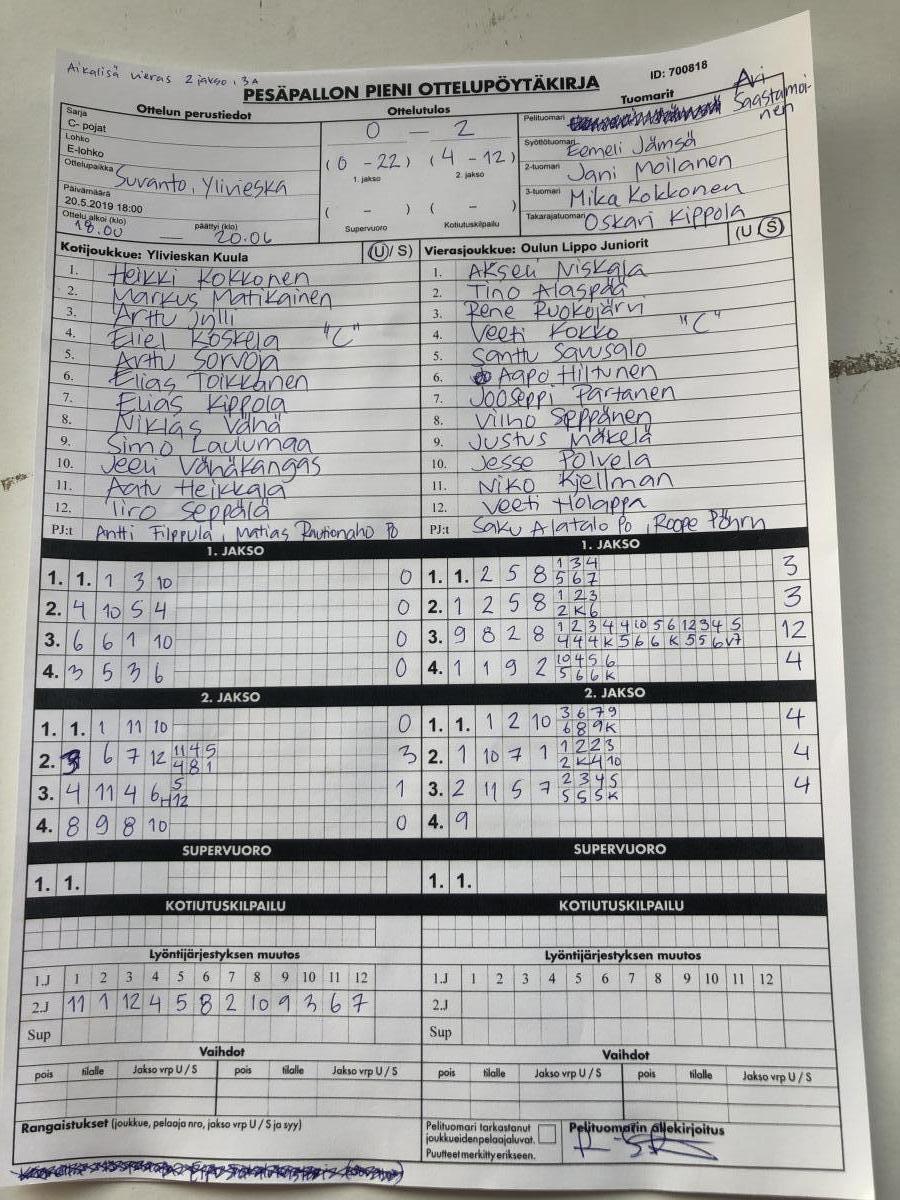 Aikalisä vieras 2 jakso, 3A
ID: 700818
PESÄPALLON PIENI OTTELUPÖYTÄKIRJA
Ottelun perustiedot
Ottelutulos
Tuomarit
Sarja
C- pojat
Lohko
E-lohko
Ottelupaikka Suvanto, Ylivieska
Päivämäärä
20.5.2019 18:00
Ottelu alkoi (klo) päättyi (klo)
18.00 — 20.06
0 — 2
(0 - 22) (4 - 12)
1. jakso 2. jakso
( - ) ( - )
Supervuoro Kotiutuskilpailu
Pelituomari Ari Saastamoi-
nen
Syöttötuomari Eemeli Jämsä
2-tuomari Jani Moilanen
3-tuomari Mika Kokkonen
Takarajatuomari Oskari Kippola
Kotijoukkue: Ylivieskan Kuula (U/ S)
1. Heikki Kokkonen
2. Markus Matikainen
3. Arttu Jylli
4. Eliel Koskela "C"
5. Arttu Sorvoja
6. Elias Toikkanen
7. Elias Kippola
8. Niklas Vähä
9. Simo Laulumaa
10. Jeeli Vähäkangas
11. Aatu Heikkala
12. Iiro Seppälä
PJ:t Antti Filppula, Matias Rautionaho Po
Vierasjoukkue: Oulun Lippo Juniorit (U / S)
1. Akseli Niskala
2. Tino Alaspää
3. Rene Ruokojärvi
4. Veeti Kokko "C"
5. Santtu Savusalo
6. Aapo Hiltunen
7. Jooseppi Partanen
8. Vilho Seppänen
9. Justus Mäkelä
10. Jesse Polvela
11. Niko Kjellman
12. Veeti Holappa
PJ:t Saku Alatalo Po, Roope
1. JAKSO
1. 1. 1 3 10 0
2. 4 10 5 4 0
3. 6 6 1 10 0
4. 3 5 3 6 0
1. JAKSO
1. 1. 2 5 8 1 3 4 3
5 6 7
2. 1 2 5 8 1 2 3 3
2 K 6
3. 9 8 2 8 1 2 3 4 4 10 5 6 1 2 3 4 5 12
4 4 4 K 5 6 6 K 5 5 6 7
4. 1 1 9 2 10 4 5 6 4
5 6 6 K
2. JAKSO
1. 1. 1 11 10 0
2. 3 6 7 12 11 4 5 3
4 8 1
3. 4 11 4 6 5 1
H12
4. 8 9 8 10 0
2. JAKSO
1. 1. 1 2 10 3 6 7 9 4
6 8 9 K
2. 1 10 7 1 1 2 2 3 4
2 K 4 10
3. 2 11 5 7 2 3 4 5 4
5 5 5 K
4. 9
SUPERVUORO
1. 1.
SUPERVUORO
1. 1.
KOTIUTUSKILPAILU
KOTIUTUSKILPAILU
Lyöntijärjestyksen muutos
1.J 1 2 3 4 5 6 7 8 9 10 11 12
2.J 11 1 12 4 5 8 2 10 9 3 6 7
Sup
Lyöntijärjestyksen muutos
1.J 1 2 3 4 5 6 7 8 9 10 11 12
2.J
Sup
Vaihdot
pois tilalle Jakso vrp U / S pois tilalle Jakso vrp U / S
Vaihdot
pois tilalle Jakso vrp U / S pois tilalle Jakso vrp U / S
Rangaistukset (joukkue, pelaaja nro, jakso vrp U / S ja syy)
Pelituomari tarkastanut
joukkueidenpelaajaluvat.
Puutteet merkitty erikseen.
Pelituomarin allekirjoitus